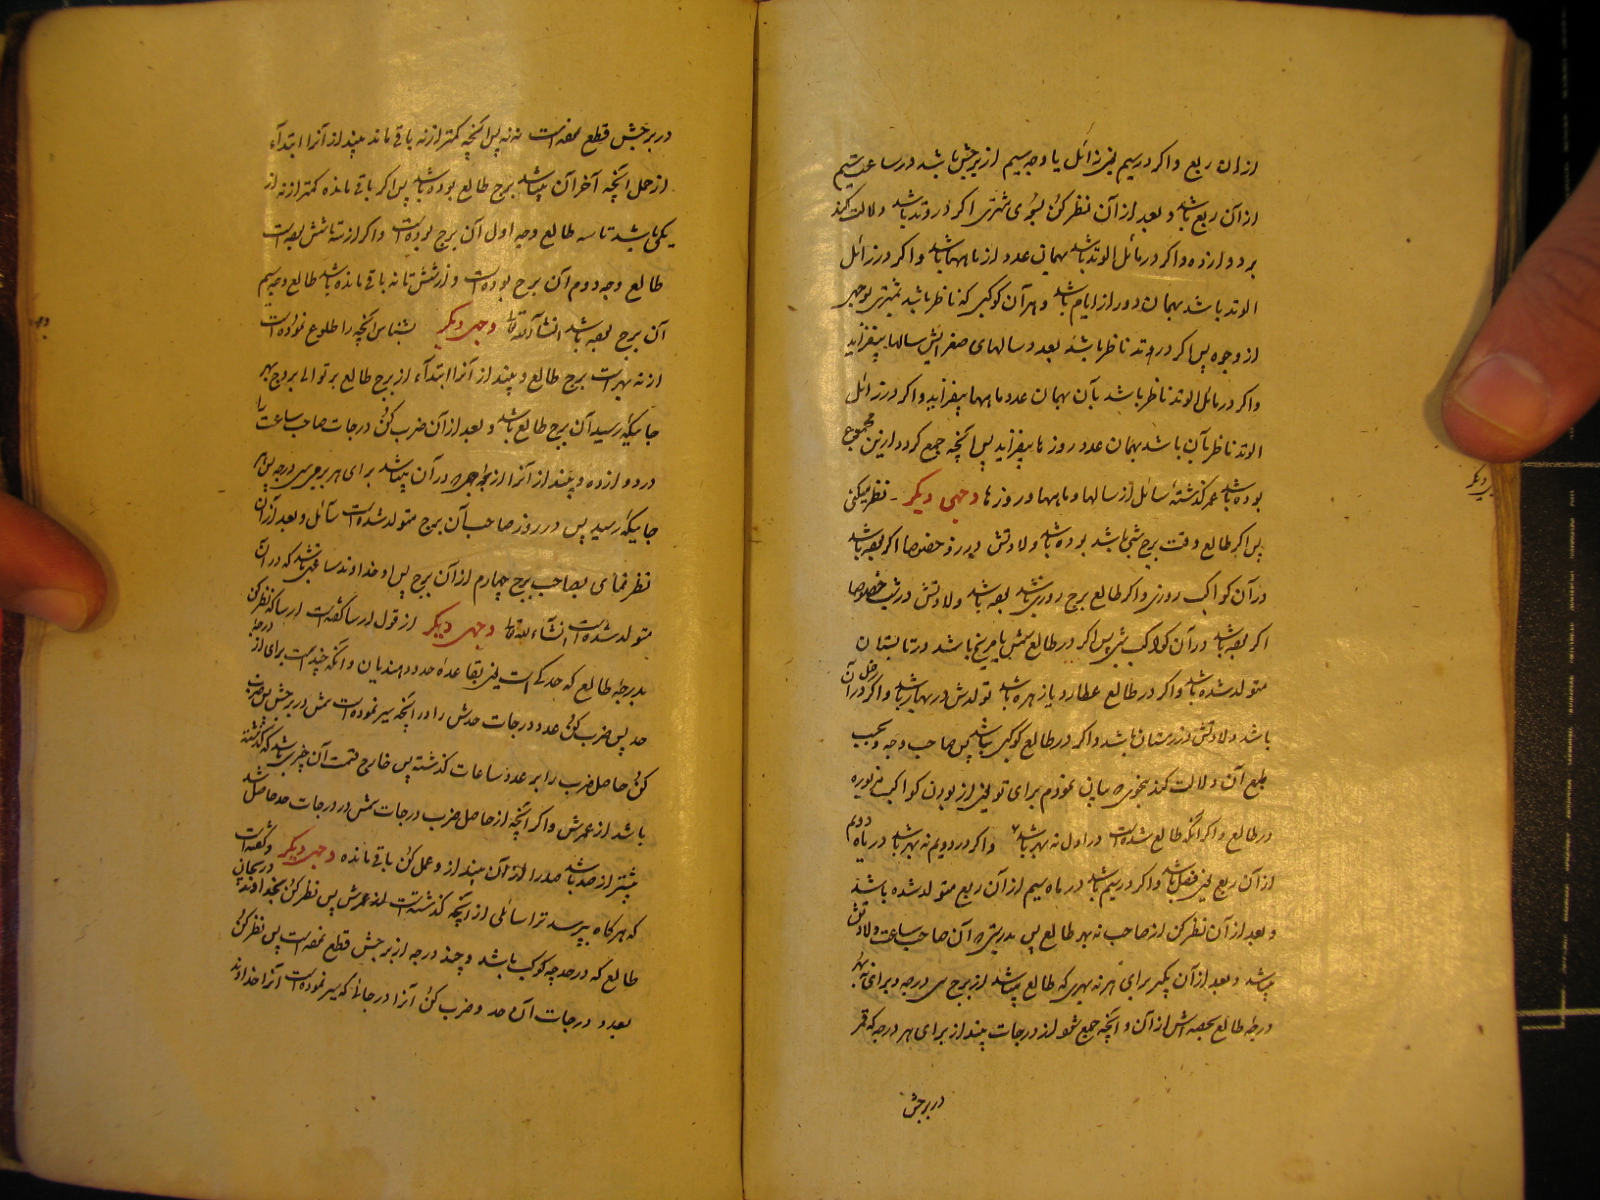 ازان ربع واکر در سیم یعنی زائل یا وجه سیم از برجش باشد در ساعت سیم
از آن ربع باشد و بعد از آن نظر کن بسوی مشتری اکر در وتد باشد دلالت کند
بر دوازده واکر در مائل الوتد باشد بهمان عدد از ماهها باشد واکر در زائل
الوتد باشد بهمان دور از ایام باشد و هر آن کوکبی که ناظر باشد بمشتری بوجهی
از وجوه پس اکر در وتد ناظر باشد بعدد سالهای صغرایش سالها بیفزاید
واکر در مائل الوتد ناظر باشد بآن بهمان عدد ماهها بیفزاید واکر در زائل
الوتد ناظر بآن باشد بهمان عدد روزها بیفزاید پس آنچه جمع کردد ازین مجموع
بوده باشد عمر کذشتهٔ سائل از سالها و ماهها و روزها وجهی دیکر نظر میکنی
پس اکر طالع وقت برج شبی باشد بوده باشد ولادتش در روز خصوصا اکر بوده باشد
در آن کواکب روزی واکر طالع برج روزی باشد بوده باشد ولادتش در شب خصوصا
اکر بوده باشد در آن کواکب شبی پس اکر در طالع شمس یا مریخ باشد در تابستان
متولد شده باشد واکر در طالع عطارد یا زهره باشد تولدش در بهار باشد واکر زحل در آن
باشد ولادتش در زمستان باشد واکر در طالع کوکبی نباشد پس صاحب وجه و بحسب
طبع آن دلالت کند بنحوی که بیان نمودم برای تو یعنی از بودن کواکب مزبوره
در طالع واکر آنکه طالع شده است در اول نه بهر باشد واکر در دویم نه بهر باشد در ماه دویم
از آن ربع یعنی فصل باشد واکر در سیم باشد در ماه سیم از آن ربع متولد شده باشد
و بعد از آن نظر کن از صاحب نه بهر طالع پس بدرستی که آن صاحب ساعت ولادتش
میباشد و بعد از آن بکیر برای هر نه بهری که طالع میباشد از برج سی درجه و برای نه بهر
درجه طالع بحصه اش از آن و آنچه جمع شود از درجات بینداز برای هر درجه که قمر
در برجش
وجهی دیکر
در برجش قطع نموده است نه نه پس آنچه کمتر از نه باقی ماند بینداز آنرا ابتدآء
از حمل آنچه آخر آن میباشد برج طالع بوده باشد پس اکر باقی مانده کمتر از نه از
یکی باشد تا سه طالع وجه اول آن برج بوده است واکر از سه تا شش بوده است
طالع وجه دوم آن برج بوده است و از شش تا نه باقی مانده باشد طالع وجه سیم
آن برج بوده باشد انشآء الله تعالی وجهی دیکر بشناس آنچه را طلوع نموده است
از نه بهر است برج طالع و بینداز آنرا ابتدآء از برج طالع بر توالی بروج بهر
جائیکه رسید آن برج طالع باشد و بعد از آن ضرب کن درجات صاحب ساعت را
در دوازده و بینداز آنرا از برجی که در آن میباشد برای هر برجی سی درجه پس بهر
جائیکه رسید پس در روز صاحب آن برج متولد شده است سائل و بعد از آن
نظر نمای بصاحب برج چهارم از آن برج پس او خداوند ساعتی باشد که در آن
متولد شده است انشآء الله تعالی وجهی دیکر از قول ارسا کفته است ارسا که نظر کن
بدرجه طالع که حد کیست یعنی بقاعدهٔ حدود هندیان و آنکه چند است برای او از درجه
حد پس ضرب کن عدد درجات حدش را در آنچه سیر نموده است شمس در برجش پس ضرب
کن حاصل ضرب را بر عدد ساعات کذشته پس خارج قسمت آن چیزی باشد که کذشته
باشد از عمرش واکر آنچه از حاصل ضرب درجات شمس در درجات حد حاصل شد
بیشتر از صد باشد صد را از آن بینداز و عمل کن باقی مانده وجهی دیکر و کفته است در یحانی
که هرکاه بپرسد ترا سائلی از آنچه کذشته است از عمرش پس نظر کن بخداوند
طالع که در حد چه کوکب باشد و چند درجه از برجش قطع نموده است پس نظر کن
بعدد درجات آن حد و ضرب کن آنرا در جائی که سیر نموده است آنرا خداوند